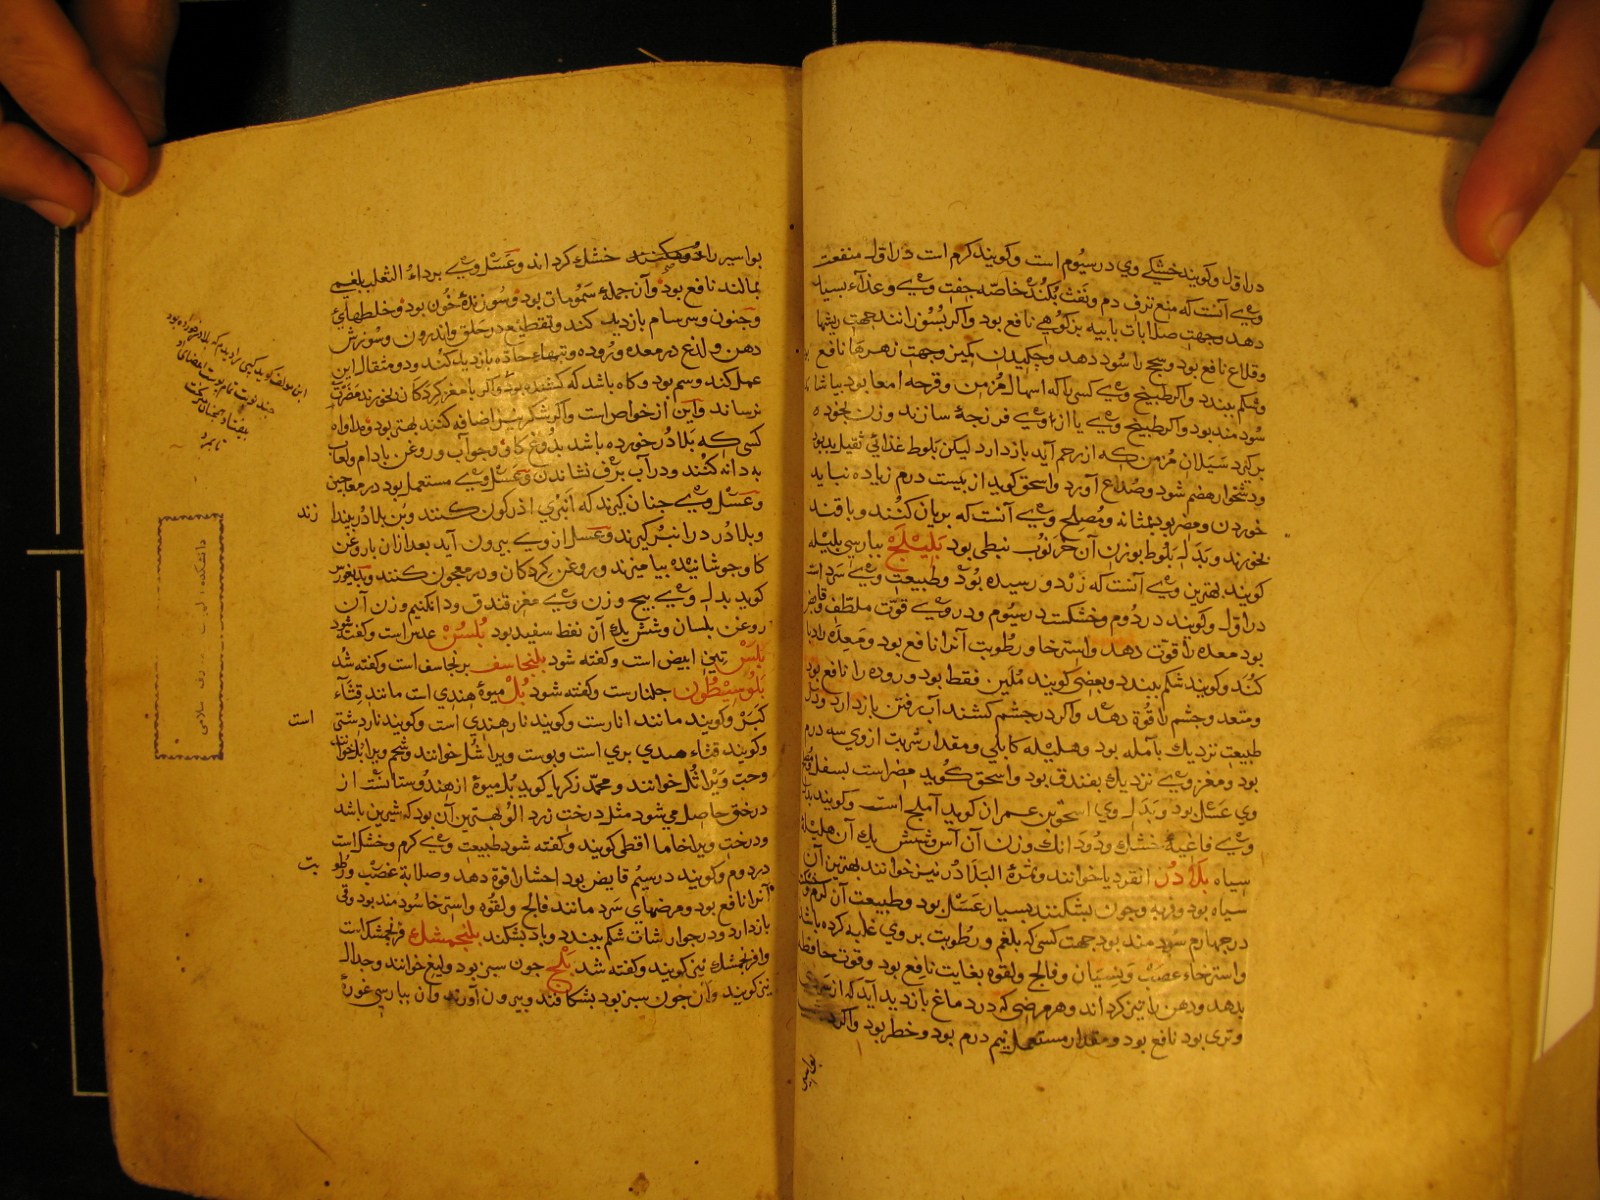 در اول و کویند خشکی وی در سیوم است و کویند کرم است در اول منفعت
وی آنست که منع نزف دم و نفث بکند خاصه جفت وی و غذاء بسیار
دهد وجهت صلابات با پیه بز کوهی نافع بود واکر بسوزانند جهت ریشها
وقلاع نافع بود وسحج را سود دهد وچکیدن کمیز وجهت زهرها نافع
وشکم ببندد واکر طبیخ وی کسی را که اسهال مزمن وقرحه امعا بود بیاشامد
سود مند بود واکر طبیخ وی یا از وی فرزجه سازند و زن بخود
برکیرد سیلان مزمن که از رحم آید باز دارد لیکن بلوط غذائی ثقیل بود
ودشخوار هضم شود وصداع آورد واسحق کوید از بیست درم زیاده نباید
خوردن ومضر بود بمثانه ومصلح وی آنست که بریان کنند وبا قند
بخورند وبدل بلوط بوزن آن خرنوب نبطی بود بلیلج بپارسی بلیله
کویند بهترین وی آنست که زرد و رسیده بود وطبیعت وی سرد است
در اول وکویند در دوم وخشکست در سیوم ودر وی قوت ملطف وقابض
بود معده را قوت دهد واسترخا ورطوبت آنرا نافع بود ومعده را دبا
کند وکویند شکم ببندد وبعضی کویند ملین فقط بود و روده را نافع بود
ومقعد وچشم را قوه دهد واکر در چشم کشند آب رفتن باز دارد و در
طبیعت نزدیک بآمله بود وهلیله کابلی ومقدار شربت از وی سه درم
بود ومغز وی نزدیک بفندق بود واسحق کوید مضر است بسفل
وی عسل بود وبدل وی اسحق بن عمران کوید آملج است وکویند بدل
وی فاغیه خشک ودو دانک وزن آن آس وشش یک آن هلیله
سیاه بلادر انقردیا خوانند وثمرة البلادر نیز خوانند بهترین آن
سیاه بود وفربه وچون بشکنند بسیار عسل بود وطبیعت آن کرم وخشک
در چهارم سود مند بود جهت کسی که بلغم ورطوبت بر وی غلبه کرده باشد
واسترخاء عصب ونسیان وفالج ولقوه بغایت نافع بود وقوت حافظه
بدهد وذهن را تیز کرداند وهر مرضی که در دماغ بازدید آید که از سردی
وتری بود نافع بود ومقدار مستعمل نیم درم بود وخطر بود واکر
بواسیر
بواسیر را خشک کرداند وعسل وی بر داء الثعلب بلغمی
بمالند نافع بود وآن جمله سمومات بود وسوزنده خون بود وخلطهای
وجنون وسرسام بازدید کند وتقطیع در حلق واندرون وسوزش
دهن ولذع در معده و روده وتبهاء حاده بازدید کند ودو مثقال ازین
عمل کند وسم بود وکاه باشد که کشنده بود واکر با مغز کردکان بخورند مضرت
نرساند واین از خواص است واکر شکر نیز اضافه کنند بهتر بود ومداواه
کسی که بلادر خورده باشد بدوغ کاو وجو آب و روغن بادام ولعاب
به دانه کنند ودر آب برف نشاندن وعسل وی مستعمل بود در معاجین
وعسل وی چنان کیرند که انبری آذرکون کنند وبن بلادر بیندا
زند
وبلادر در انبر کیرند وعسل از وی بیرون آید بعد از ان با روغن
کاو جوشانیده بیامیزند و روغن کردکان ودر معجون کنند ودیغورس
کوید بدل وی پنج وزن وی مغز فندق و دانکنیم وزن آن
روغن بلسان وشش یک آن نفط سفید بود بلسن عدس است وکفته شود
بلس تین ابیض است وکفته شود بلنجاسف برنجاسف است وکفته شد
بلوسیطون جلنارست وکفته شود بل میوه هندی است مانند قثاء
کبر وکویند مانند انارست وکویند نار هندی است وکویند نار دشتی
است
وکویند قثاء هندی بری است وپوست ویرا شل خوانند وشجر ویرا بل خوانند
وحب ویرا ثل خوانند ومحمد زکریا کوید بل میوه از هندوستانست از
درختی حاصل می شود مثل درخت زرد الو بهترین آن بود که شیرین باشد
ودرخت ویرا خاما اقطی کویند وکفته شود طبیعت وی کرم وخشک است
در دوم وکویند در سیم قابض بود احشا را قوة دهد وصلابة عصب ورطو
بت
آنرا نافع بود ومرضهای سرد مانند فالج ولقوه واسترخا سود مند بود وقی
باز دارد ودر جوارشات شکم ببندد وباد بشکند بلنجمشک فرنجمشک است
وافرنجمشک نیز کویند وکفته شد بلح چون سبز بود ولیع خوانند وجدال
نیز کویند وآن چون سبز بود بشکافند وبیرون آورند وآن بپارسی غوره
ابن مولف کوید کسی را دیدم که بلادر خورده بود
چند نوبت تمام پوست اعضای او
بیفتاد وهمچنان میرفت
تا بمرد